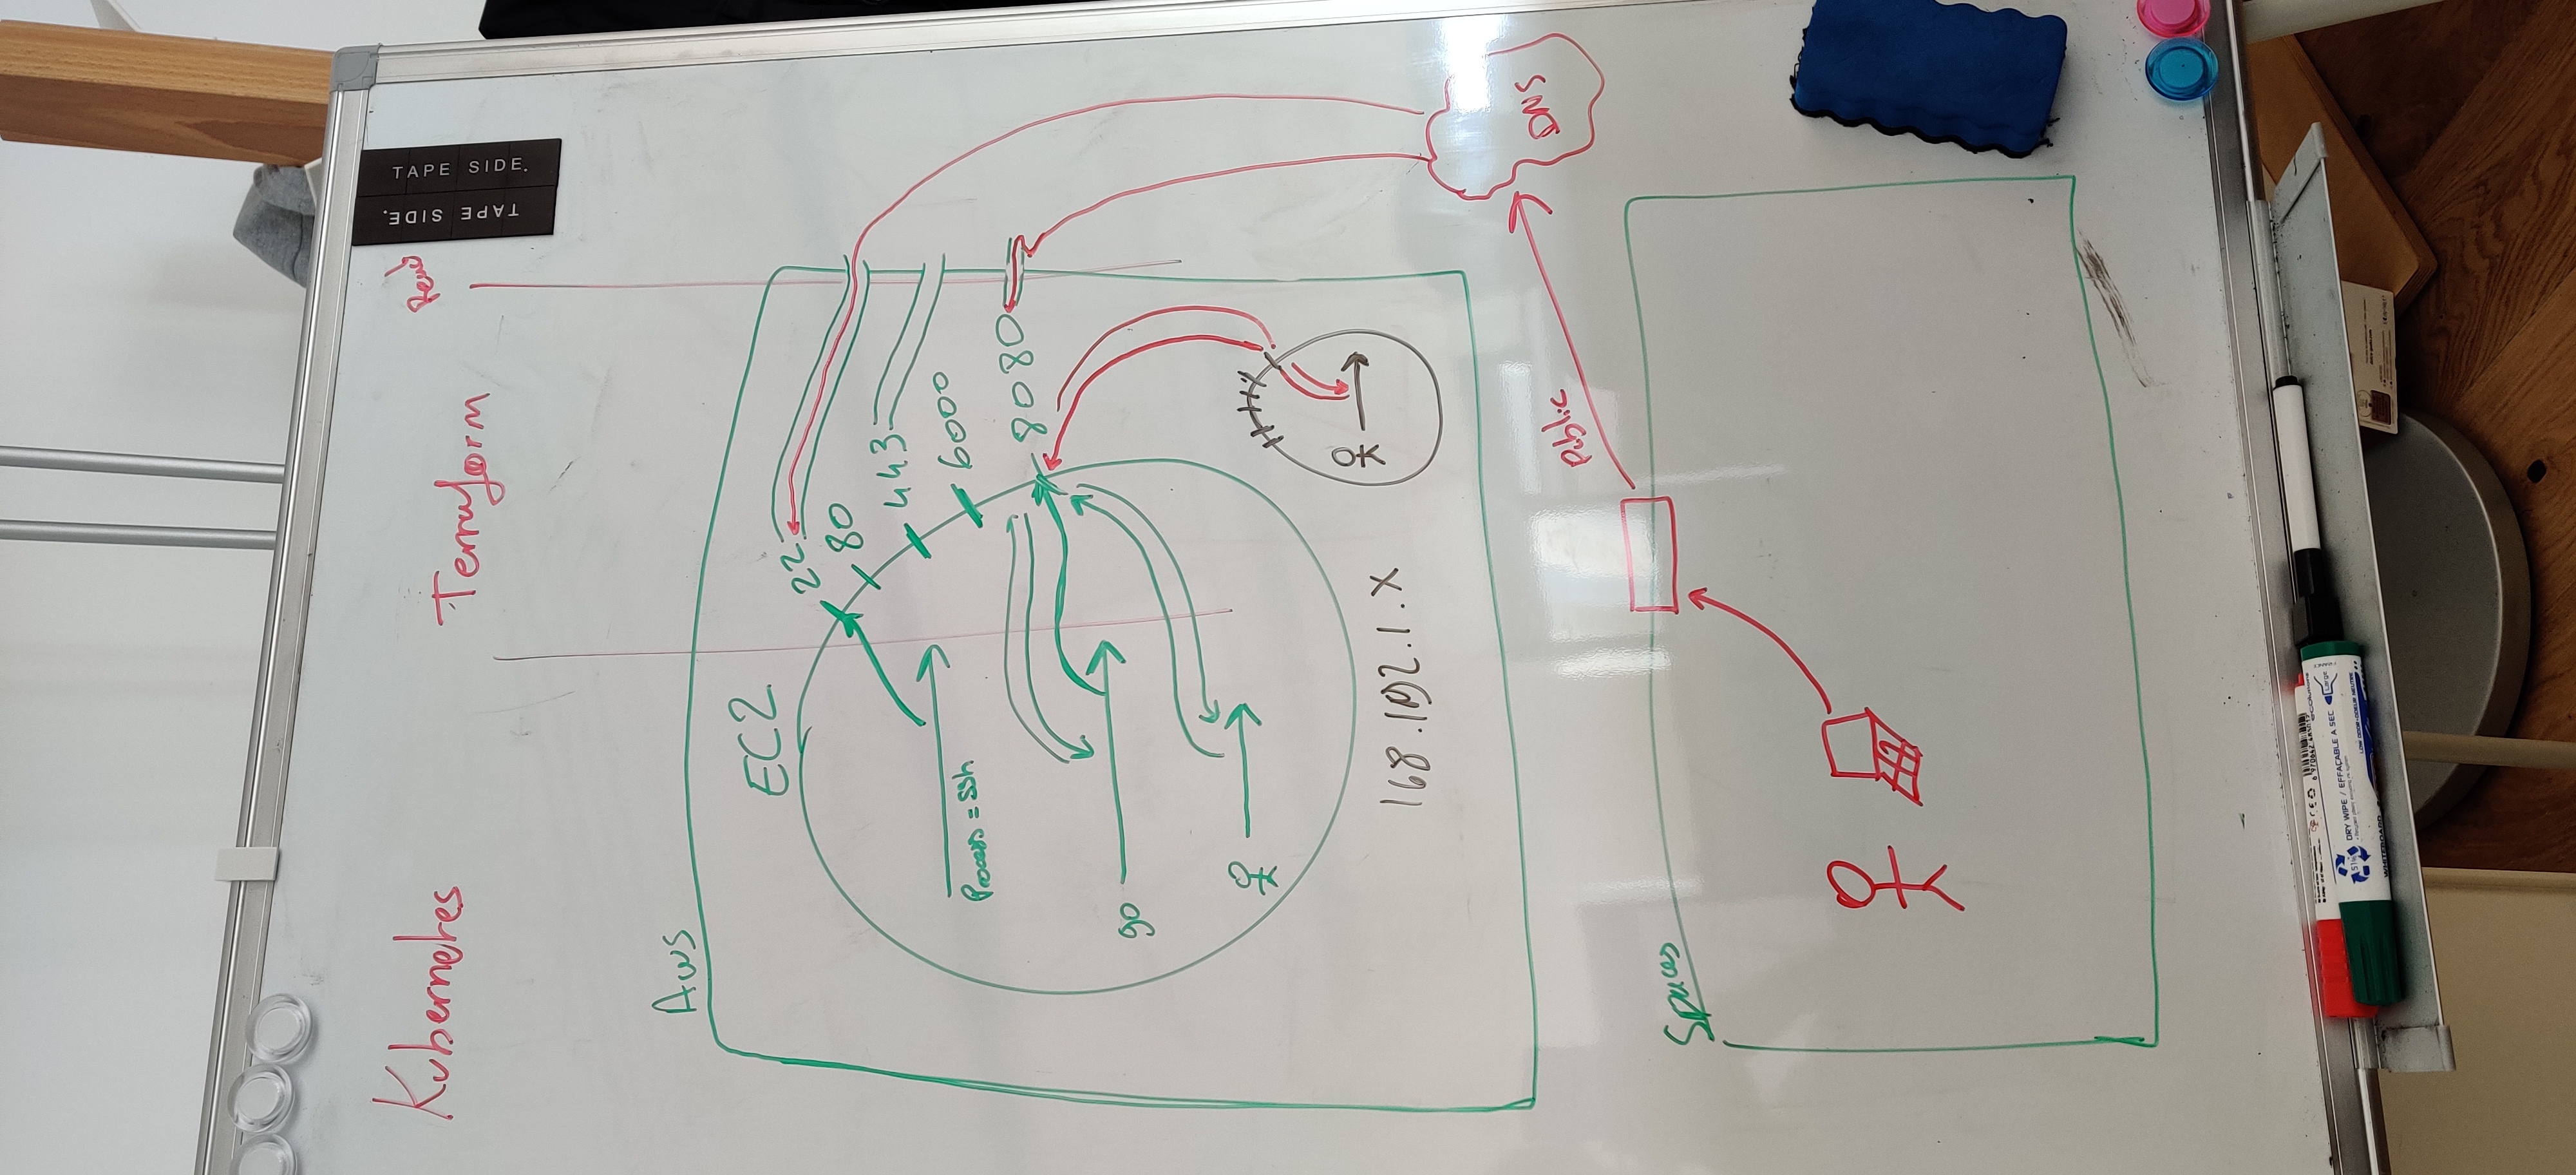 Kubernetes
Terraform
Read
TAPE SIDE.
TAPE SIDE.
Aws
EC2
22
80
443
6000
8080
Process = ssh
go
168.192.1.X
Public
DNS
Spaces
DRY WIPE / EFFAÇABLE A SEC
Large
LOW ODOR-ODEUR NEUTRE
WHITEBOARD